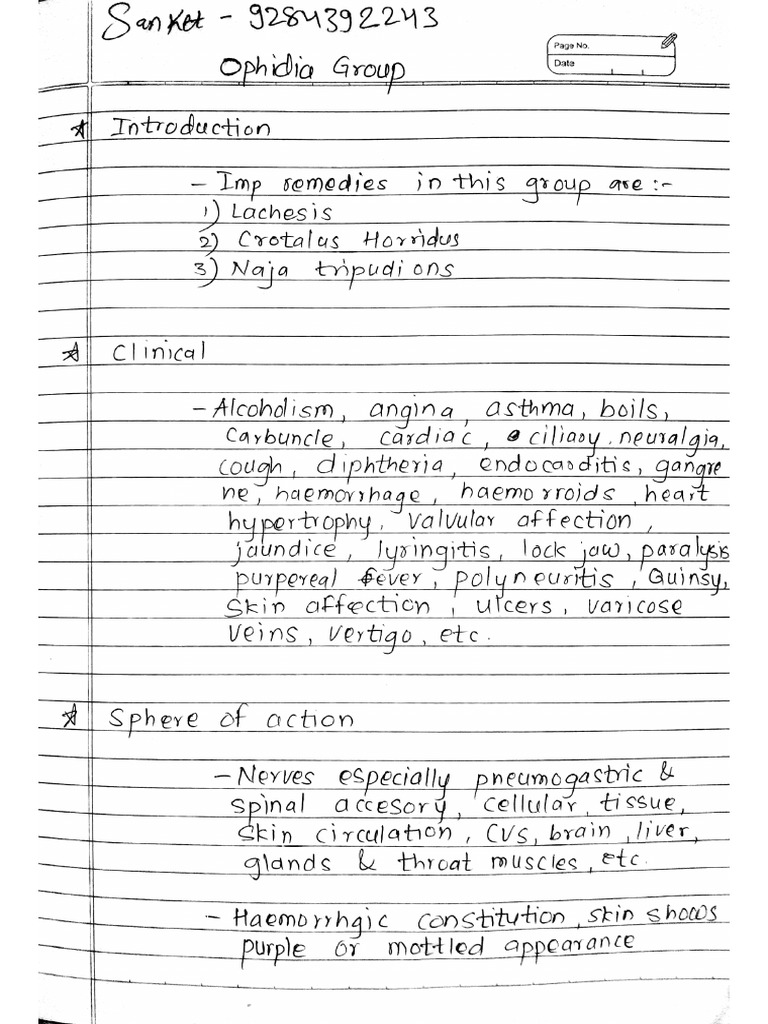 Sanket - 9284392243
Page No.
Date
Ophidia Group
* Introduction
- Imp remedies in this group are :-
1) Lachesis
2) Crotalus Horridus
3) Naja tripudions
* Clinical
- Alcoholism, angina, asthma, boils,
Carbuncle, cardiac, ciliaoy neuralgia,
cough, diphtheria, endocaoditis, gangre
ne, haemorrhage, haemorroids, heart
hypertrophy, valvular affection,
jaundice, lyringitis, lock jaw, paralysis
purpereal fever, polyneuritis, Quinsy,
Skin affection, ulcers, varicose
veins, vertigo, etc.
* Sphere of action
- Nerves especially pneumogastric &
spinal accesory, cellular, tissue,
skin circulation, CVS, brain, liver,
glands & throat muscles, etc.
- Haemorrhgic constitution, skin shows
purple or mottled appearance